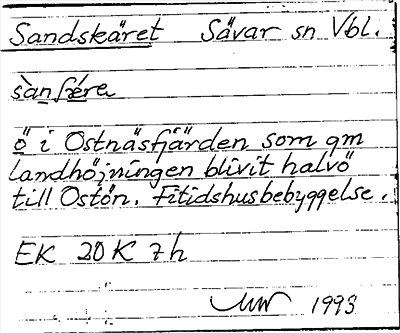 Sandskäret Sävar sn Vbl.
sànfǽra
ö i Ostnäsfjärden som gm
landhöjningen blivit halvö
till Ostön. Fitidshusbebyggelse.
EK 20 K 7h
1993